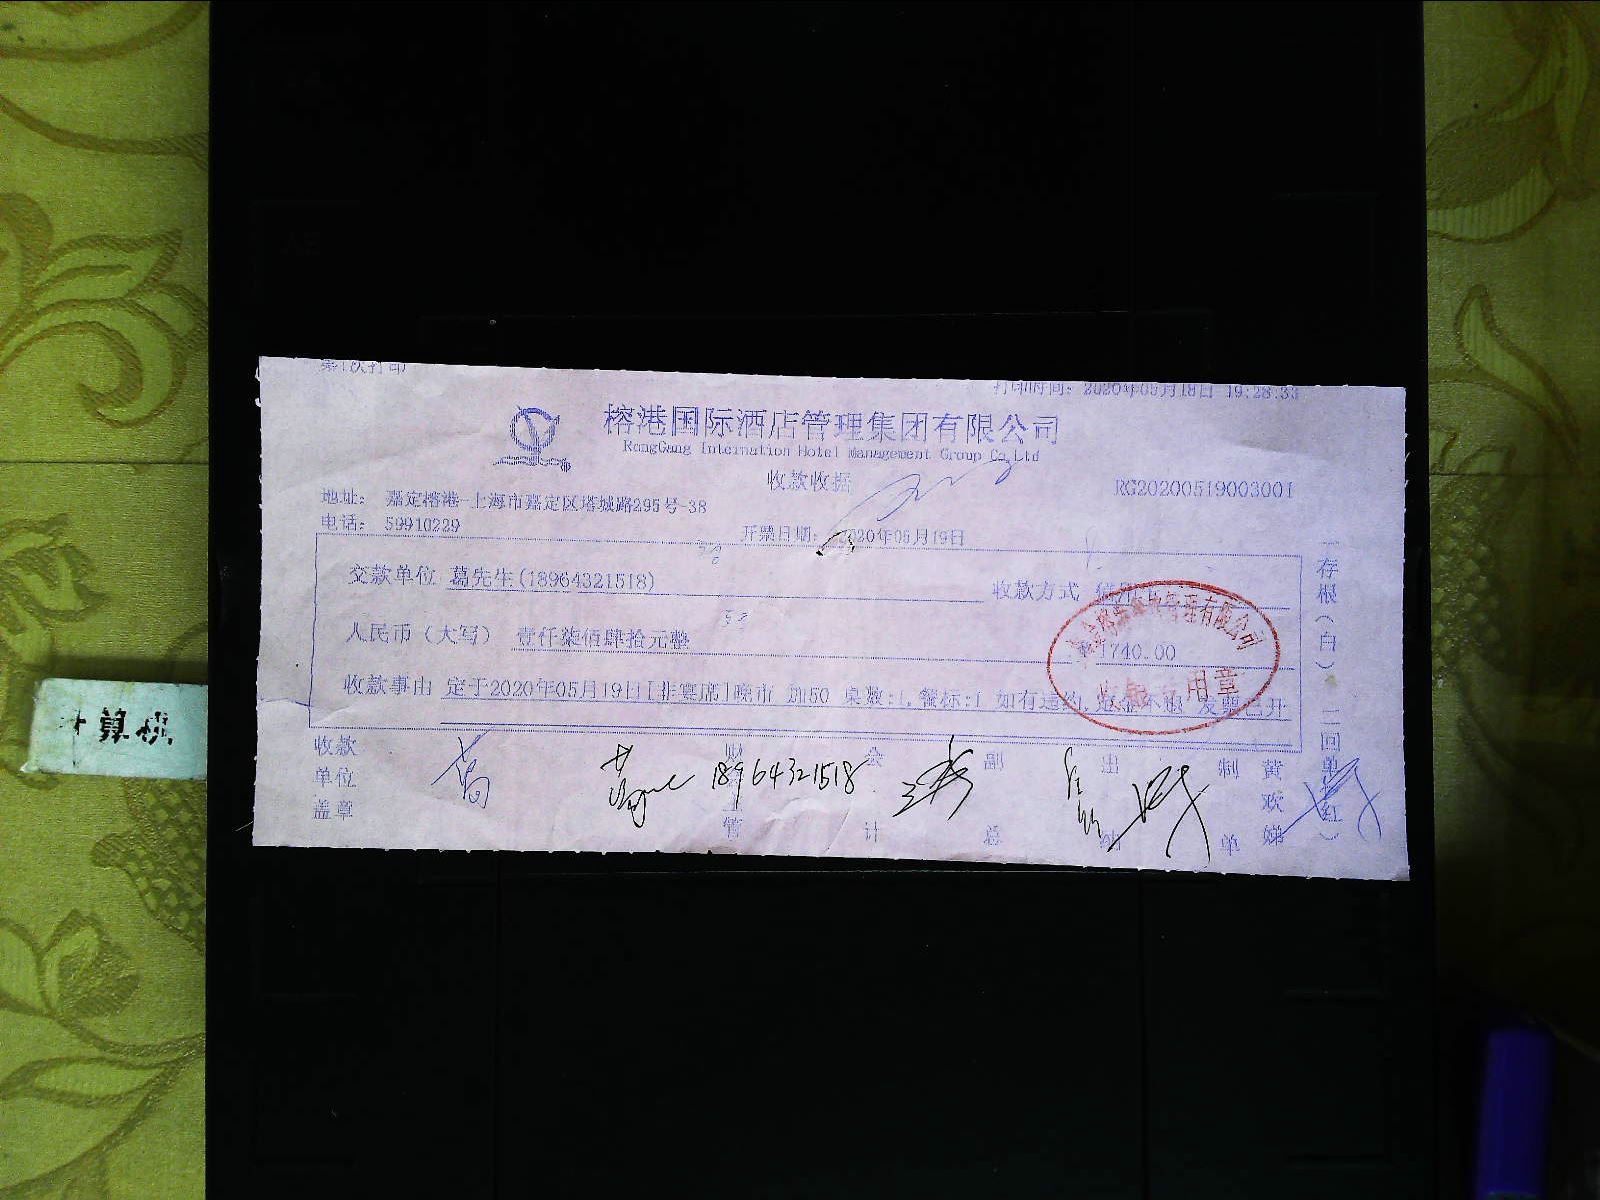 第1次打印
打印时间：2020年05月18日 19:28:33
榕港国际酒店管理集团有限公司
RongGang Internation Hotel Management Group Co.Ltd
收款收据
RG20200519003001
地址： 嘉定榕港-上海市嘉定区塔城路295号-38
电话： 59910229
开票日期： 2020年05月19日
交款单位 葛先生(18964321518) 收款方式
人民币（大写） 壹仟柒佰肆拾元整 1740.00
收款事由 定于2020年05月19日[非宴席]晚市 加50 桌数:1,餐标:1 如有违约,定金不退 发票已开
管理有限公司
用章
收款单位盖章
葛
18964321518
会计
副总
出纳
制单
黄欢娣
一存根（白）
二回单（红）
计算机